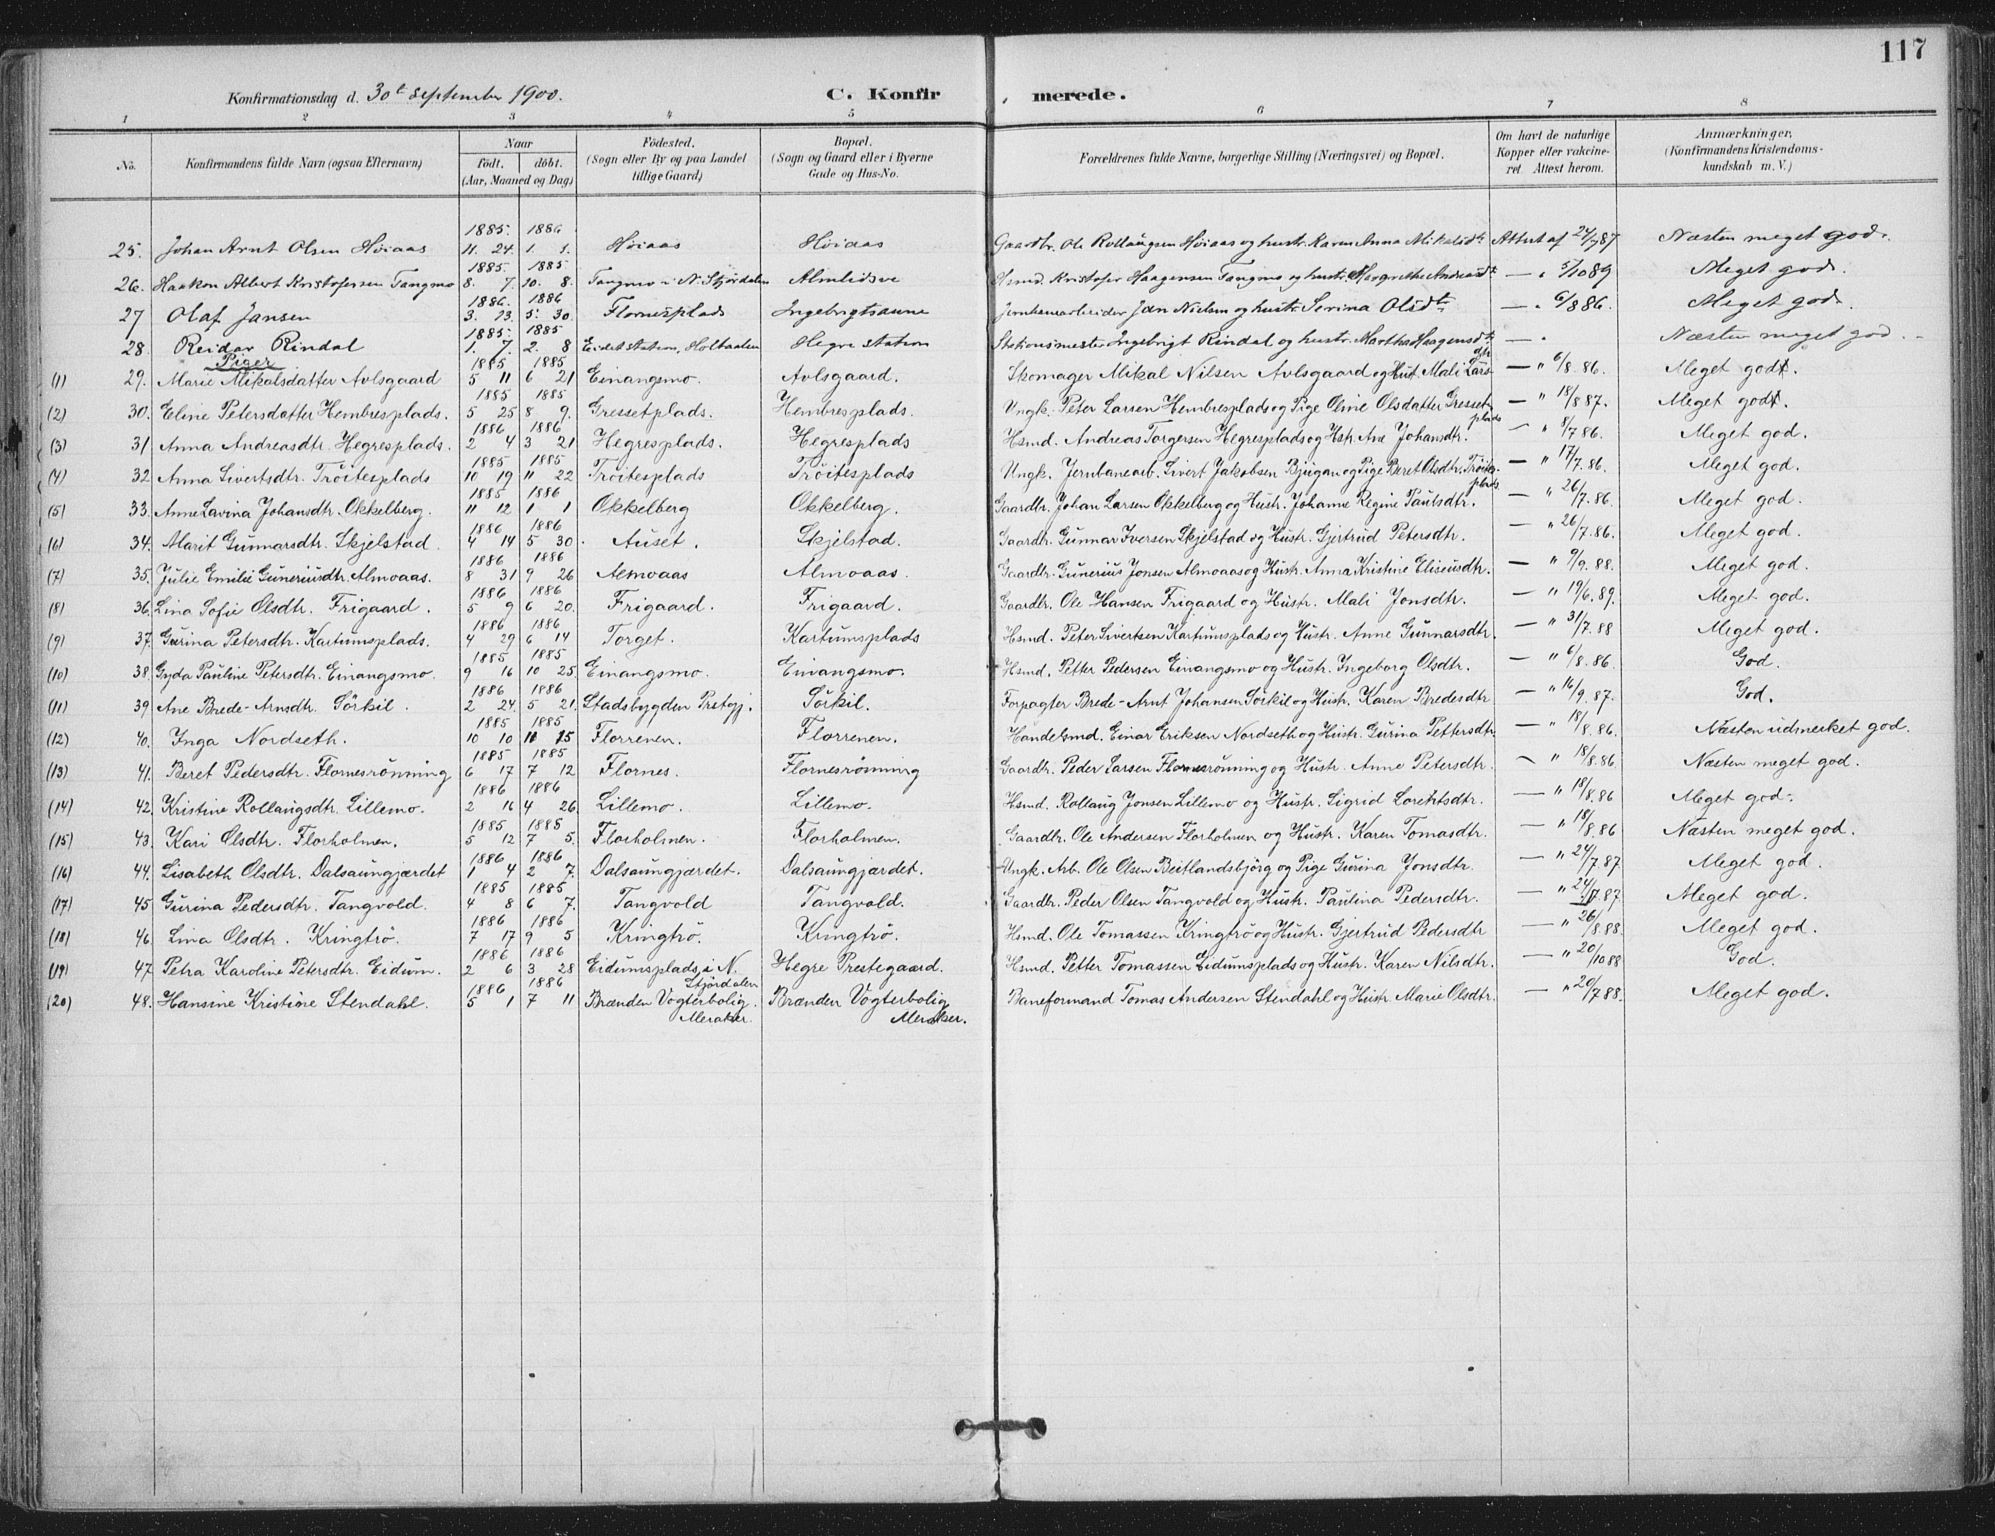 117
Konfirmationsdag d. 30te September 1900. C. Konfir merede.
1 2 3 4 5 6 7 8
No. Konfirmandens fulde Navn (ogsaa Efternavn) Naar født. døbt. (Aar, Maaned og Dag) Fødested. (Sogn eller By og paa Landet tillige Gaard) Bopæl. (Sogn og Gaard eller i Byerne Gade og Hus-No. Forældrenes fulde Navne, borgerlige Stilling (Næringsvei) og Bopæl. Om havt de naturlige Kopper eller vakcineret. Attest herom. Anmærkninger, (Konfirmandens Kristendomskundskab m. V.)
25. Johan Arnt Olsen Høiaas 1885. 11. 24. 1886 1. 1. Høiaas Høiaas Gaardbr. Ole Rollaugsen Høiaas og hustr. Karen Anna Mikalsdtr Attest af 24/7 87 Næsten meget god.
26. Haakon Albert Kristofersen Tangmo 1885. 8. 7. 1885 10. 8. Tangmo i N. Stjørdalen Almlidsve Hsmd. Kristofer Haagensen Tangmo og hustr. Margrethe Andreasdtr — " 5/10 89 Meget god.
27 Olaf Jansen 1886. 3. 23. 1886 5. 30. Flornesplads Ingebrigtsaune Jernbanearbeider Jan Nielsen og hustr. Serina Olsdtr — " 6/8 86. Meget god.
28. Reidar Rindal 1885. 1. 7. 1885 2. 8 Eidet station, Holtaalen Hegre station Stationsmester Ingebrigt Rindal og hustr. Martha Haagensdtr — " Næsten meget god.
Piger
(1) 29. Marie Mikalsdatter Avlsgaard 1885 5 11 1885 6 21 Einangsmo. Avlsgaard. Skomager Mikal Nilsen Avlsgaard og Hust. Mali Larsdtr — " 6/8. 86. Meget godt.
(2) 30. Eline Petersdatter Hembresplads. 1885 5 25 1885 8 9. Gressetplads. Hembresplads. Ungk. Peter Larsen Hembresplads og Pige Oline Olsdatter Gressetplads — " 18/8 87. Meget godt.
(3) 31 Anna Andreasdtr. Hegresplads. 1886 2 4 1886 3 21 Hegresplads. Hegresplads Hsmd. Andreas Torgersen Hegresplads og Hstr. Ane Johansdtr. — " 8/7 86. Meget god.
(4) 32. Anna Sivertsdtr. Trøitesplads 1885 10 19 1885 11 22 Trøitesplads Trøitesplads Ungk. Jernbanearb. Sivert Jakobsen Bjugan og Pige Beret Olsdtr. Trøitesplads — " 17/7. 86. Meget god.
(5) 33. Anne Lavina Johansdtr. Okkelberg. 1885 11 12 1886 1 1 Okkelberg Okkelberg. Gaardbr. Johan Larsen Okkelberg og Hustr. Johanne Regine Paulsdtr. — " 26/7. 86. Meget god.
(6) 34. Marit Gunnarsdtr. Skjelstad. 1886 4 14 1886 5 30. Auset. Skjelstad. Gaardbr. Gunnar Iversen Skjelstad og Hustr. Gjertrud Petersdtr. — " 26/7. 86. Meget god.
(7) 35. Julie Emilie Guneriusdtr. Almoaas. 1886 8 31 1886 9 26 Almoaas Almoaas. Gaardbr. Gunerius Jonsen Almoaas og Hustr. Anna Kristine Eliseusdtr. — " 9/9. 88. Meget god.
(8) 36. Lina Sofie Olsdtr. Frigaard. 1886 5 9 1886 6 20. Frigaard. Frigaard. Gaardbr. Ole Hansen Frigaard og Hustr. Mali Jonsdtr. — " 19/6. 89. Meget god.
(9) 37. Gurina Petersdtr. Kartumsplads. 1886 4 29 1886 6 14 Torget. Kartumsplads Hsmd. Peter Sivertsen Kartumsplads og Hustr. Anne Gunnarsdtr. — " 31/7. 88 Meget god.
(10) 38. Gyda Pauline Petersdtr. Einangsmo. 1885 9 16 1885 10 25. Einangsmo. Einangsmo. Hsmd. Petter Pedersen Einangsmo og Hustr. Ingeborg Olsdtr. — " 6/8. 86. God.
(11) 39. Ane Brede-Arnsdtr. Sørkil. 1886 2 24. 1886 5 21. Stadsbygden Prstgj. Sørkil. Forpagter Brede-Arnt Johansen Sørkil og Hustr. Karen Bredesdtr — " 16/9. 87. God.
(12) 40. Inga Nordseth. 1885 10 10 1885 11 15 Florrenen. Florrenen. Handelsmd. Einar Eriksen Nordseth og Hustr. Gurina Pettersdtr. — " 18/8. 86. Næsten udmerket god.
(13) 41. Beret Pedersdtr. Flornesrønning 1885 6 17 1885 7 12 Flornes. Flornesrønning Gaardbr. Peder Larsen Flornesrønning og Hustr. Anne Petersdtr. — " 18/8. 86 Næsten meget god.
(14) 42. Kristine Rollaugsdtr. Lillemo. 1886 2 16 1886 4 26. Lillemo. Lillemo. Hsmd. Rollaug Jonsen Lillemo og Hustr. Sigrid Lorentsdtr. — " 18/8. 86 Meget god.
(15) 43. Kari Olsdtr. Florholmen. 1885 5 12 1885 7 5. Florholmen. Florholmen. Gaardbr. Ole Andersen Florholmen og Hustr. Karen Tomasdtr. — " 18/8. 86 Næsten meget god.
(16) 44. Lisabeth Olsdtr. Dalsaungjærdet 1886 1 4 1886 2 7. Dalsaungjærdet. Dalsaungjærdet. Ungk. Arb. Ole Olsen Beitlandsbjørg og Pige Gurina Jonsdtr. — " 24/7. 87 Meget god.
(17) 45 Gurina Pedersdtr. Tangvold. 1885 4 8 1885 6 7. Tangvold Tangvold. Gaardbr. Peder Olsen Tangvold og Hustr. Paulina Pedersdtr. — " 24/7. 87. Meget god.
(18) 46. Lina Olsdtr. Kringtrø. 1886 7 17 1886 9 5 Kringtrø. Kringtrø. Hsmd. Ole Tomassen Kringtrø og Hustr. Gjertrud Pedersdtr — " 26/8. 88. Meget god.
(19) 47. Petra Karoline Petersdtr. Eidum. 1886 2 6 1886 3 28 Eidumsplads, i N. Stjørdalen Hegre Prestegaard. Hsmd. Petter Tomassen Eidumsplads og Hustr. Karen Nilsdtr. — " 20/10 88 God.
(20) 48. Hansine Kristine Stendahl. 1886 5 1 1886 7 11 Brænden Vogterbolig. Meraker. Brænden Vogterbolig Meraker. Baneformand Tomas Andersen Stendahl og Hustr Marie Olsdtr. — " 20/7. 88. Meget god.